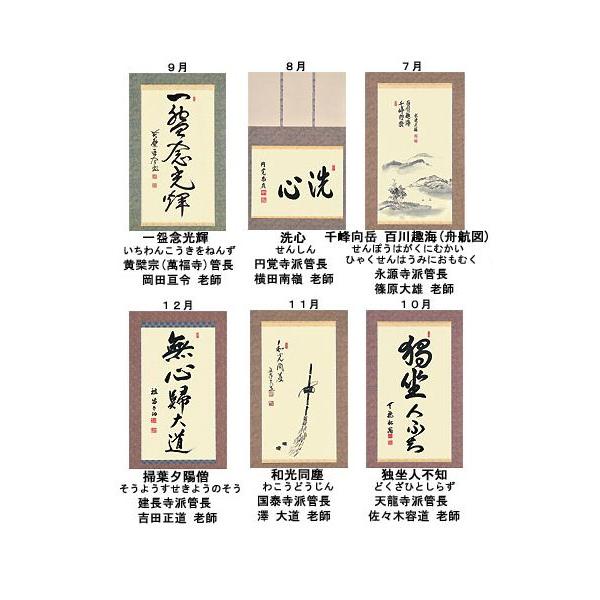 9月
一盌念光輝
一盌念光輝
いちわんこうきをねんず
黄檗宗(萬福寺)管長
岡田亘令 老師
8月
洗心
洗心
せんしん
円覚寺派管長
横田南嶺 老師
7月
百川趣海
千峰向岳
千峰向岳 百川趣海(舟航図)
せんぽうはがくにむかい
ひゃくせんはうみにおもむく
永源寺派管長
篠原大雄 老師
12月
無心歸大道
掃葉夕陽僧
そうようすせきようのそう
建長寺派管長
吉田正道 老師
11月
和光同塵
和光同塵
わこうどうじん
国泰寺派管長
澤 大道 老師
10月
獨坐人不知
独坐人不知
どくざひとしらず
天龍寺派管長
佐々木容道 老師